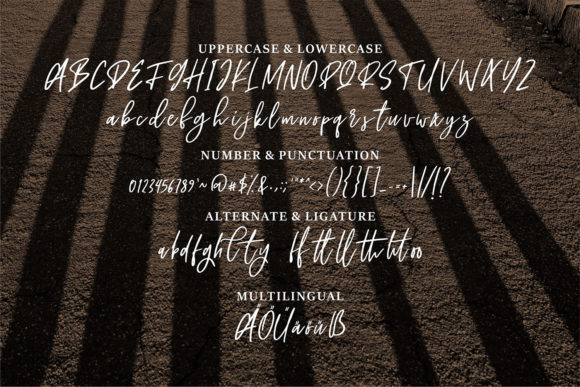 UPPERCASE & LOWERCASE
ABCDEFGHIJKLMNOPQRSTUVWXYZ
abcdefghijklmnopqrstuvwxyz
NUMBER & PUNCTUATION
0123456789'~ @#$/%&.,:; "*^<>(){}[]_-=+|\/!?
ALTERNATE & LIGATURE
abdfghlty ff tt ll th ht oo
MULTILINGUAL
ÄÖÜäöüß